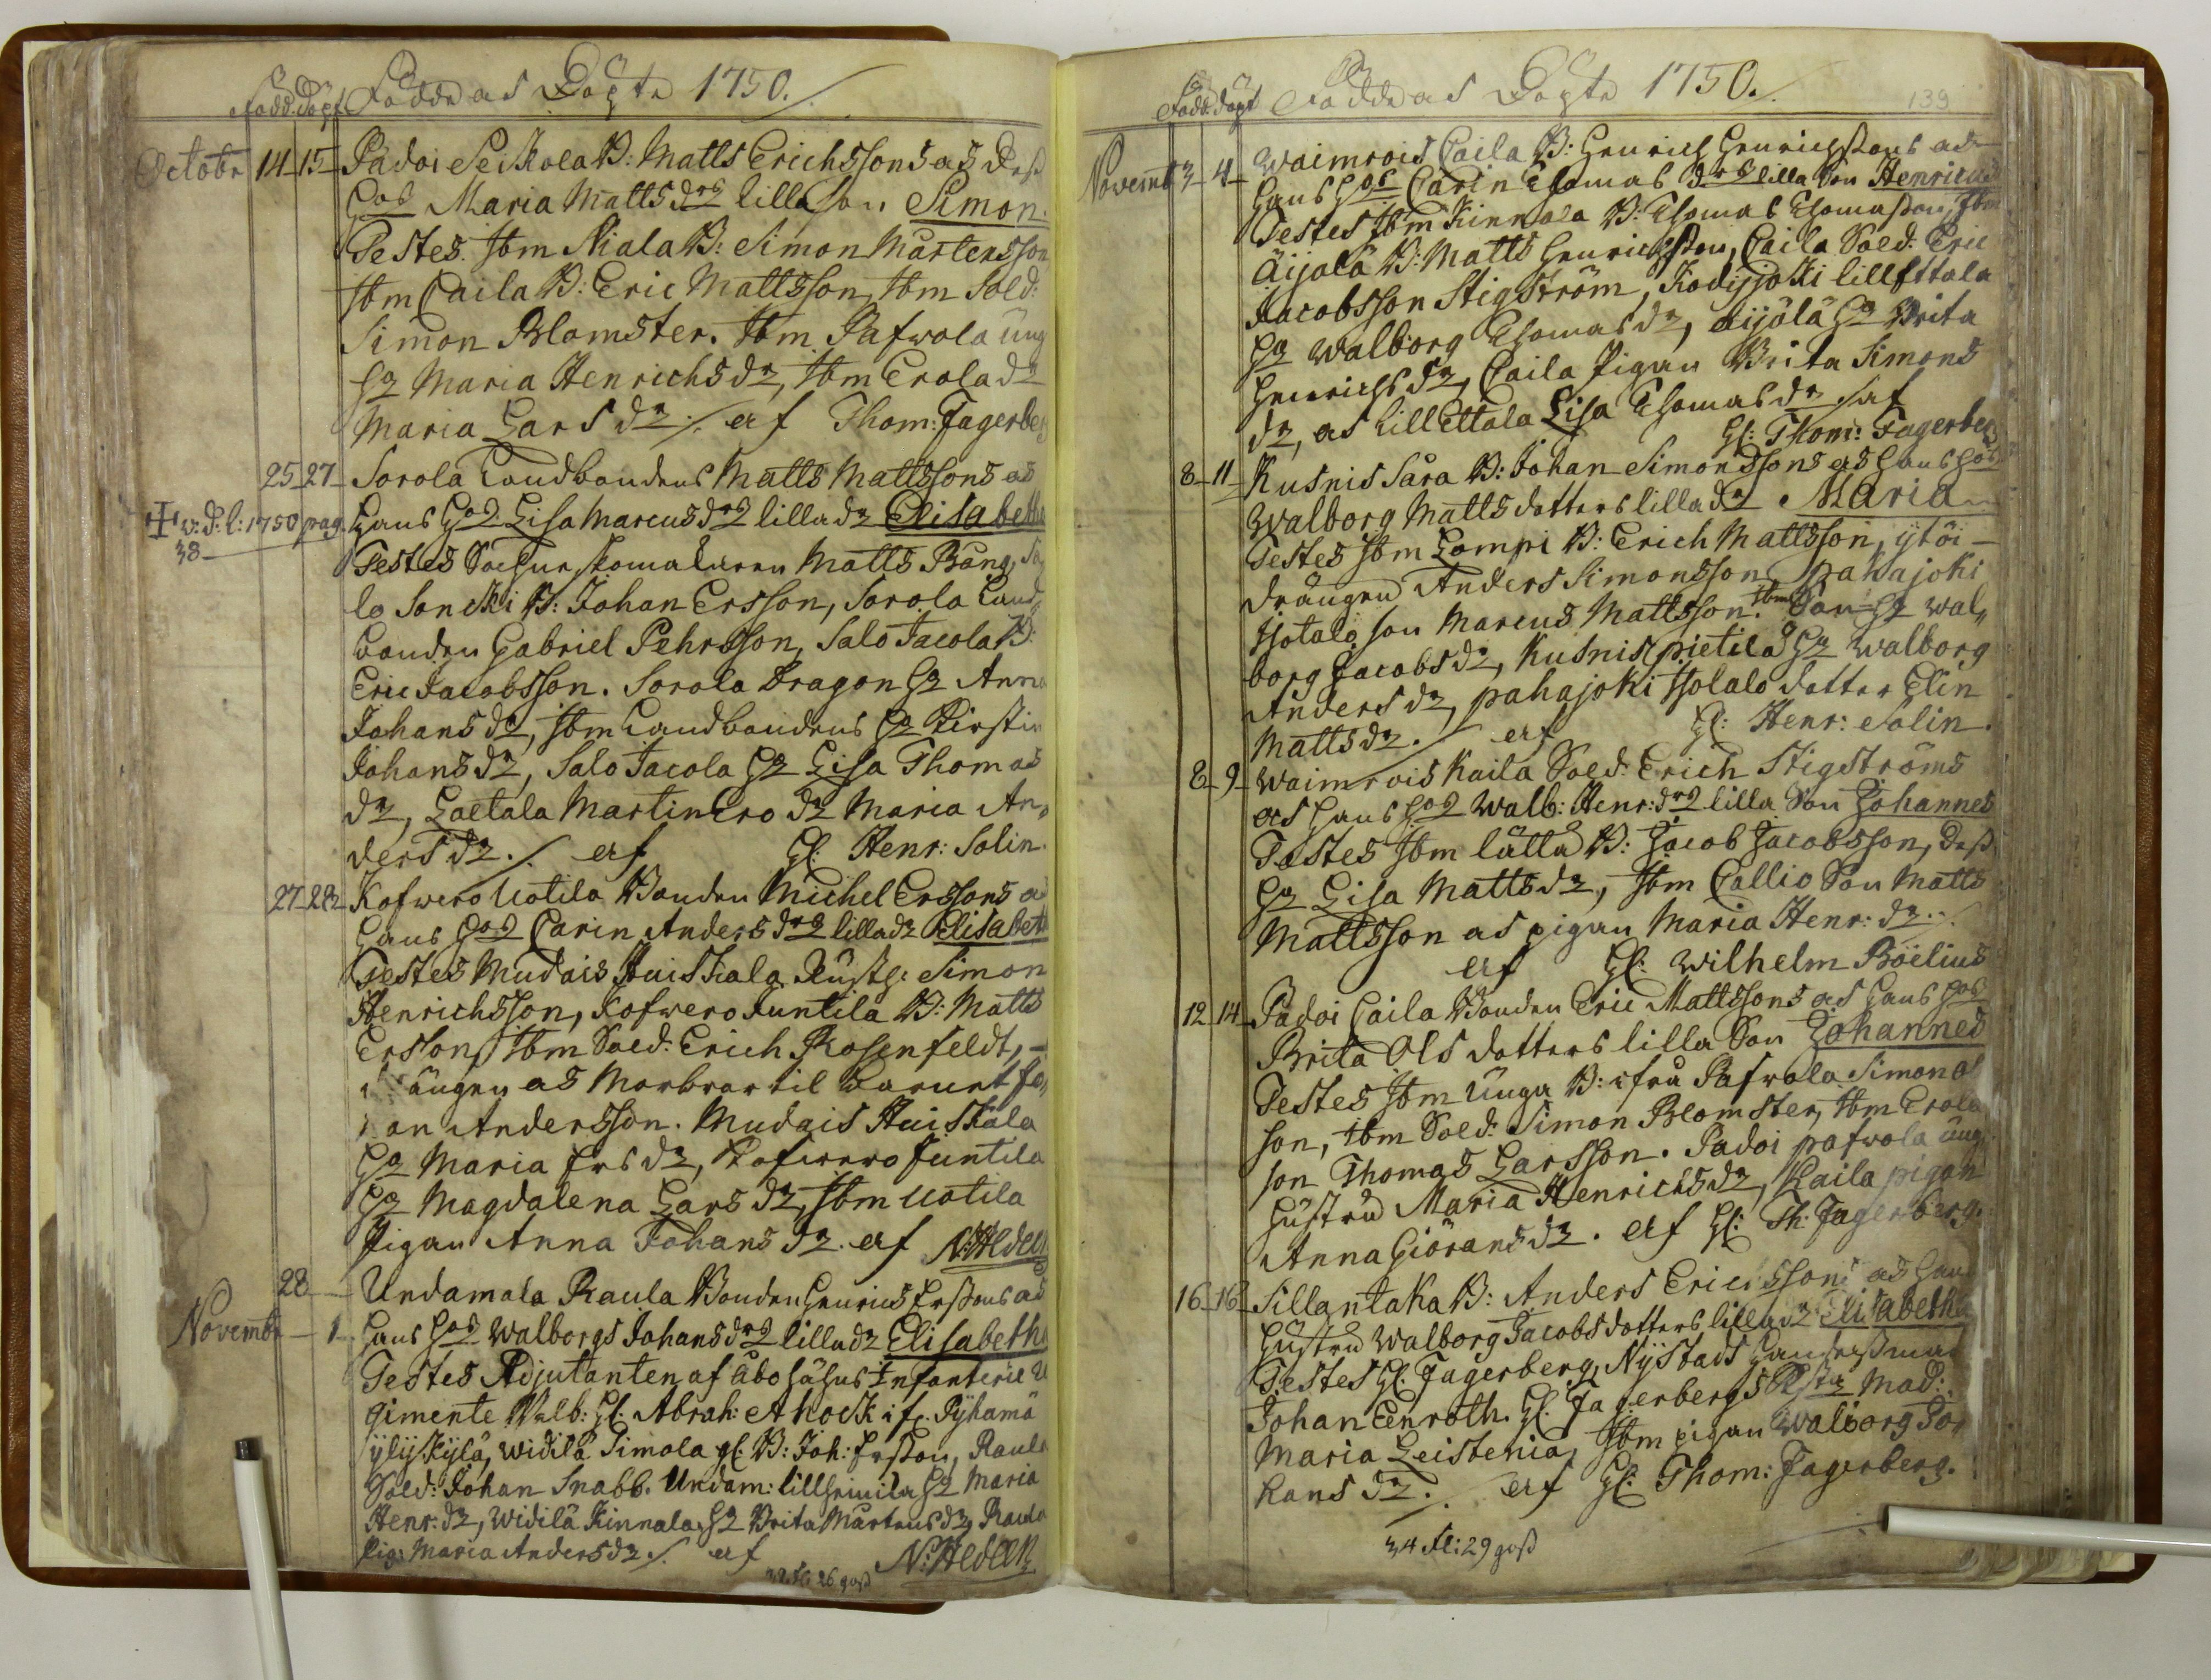 Född. Döpt. Födde och Döpte 1750.
Octobr 14 15 Pådoi Seikola B: Matts Erichssons och Dess
Hos Maria Mattsdrs lilla Son Simon.
Testes. Ibm Niala B: Simon Mårtensson
Ibm Caila B: Eric Mattsson, Ibm Sold:
Simon Blomster. Ibm Pafwola ung
Ho Maria Henrichsdr, Ibm Erola dr
Maria Larsdr ./. af Thom: Fagerberg
25 27 Sorola Landbondens Matts Mattssons och
v: d: l: 1750 pag. Hans Hos Lisa Marcusdrs lilla dr Elisabetha
38 Testes Sochneskomakaren Matts Bång, Sa
lo Soncki B: Johan Ersson, Sorola Land
bonden Gabriel Pehrsson, Salo Jacola B:
Eric Jacobsson. Sorola Dragon Ho Anna
Johansdr, Ibm Landbondens Ho Kirstin
Johansdr, Salo Jacola Ho Lisa Thomas
dr, Laetala Martin Ero dr Maria An,
dersdr ./. af Hl: Henr: Solin.
27 28 Kofwero Uotila Bonden Michel Erssons och
Hans Hos Carin Andersdrs lilla dr Elisabeth
Testes Mudais Huiskala Rustg: Simon
Henrichsson, Kofwero Juntila B: Matts
Ersson, Ibm Sold: Erich Rosenfeldt,
drängen och Morbror til Barnet Jo,
han Andersson. Mudais Huiskala
Ho Maria Ersdr, Kofwero Juntila
Ho Magdalena Larsdr, Ibm Uotila
Pigan Anna Johansdr. af N: Hedeen
28 Undamala Raula Bonden Henrics Erssons och
Novembr 1 Hans Hos Walborgs Johansdrs lilla dr Elisabetha
Testes Adjutanten af Åbo Lähns Infanterie Re
gimente Wälb: Hl: Abrah: Ahock ifr. Pyhämä
ylyskylä, Widilä Simola gl: B: Joh: Ersson, Raula
Sold: Johan Snabb. Undam: lillheinila Ho Maria
Henr: dr, Widilä Kinnala Ho Brita Mårtensdr, Raula
Pig: Maria Andersdr ./. af N: Hedeen
26 goss
Född. döpt Födde och Döpte 1750.
139
Novembr 3 4 Waimrois Caila B: Henrich Henrichssons och
Hans Hos Carin Thomasdrs lilla Son Henricus
Testes Ibm Kinnala B: Thomas Thomasson, Ibm
Äijälä B: Matts Henrichsson, Caila Sold: Eric
Jacobsson Stigström, Kodisjoki lillettala
Ho Walborg Thomasdr, Äijälä Ho Brita
Henrichsdr, Caila Pigan Brita Simons
dr, och lillettala Lisa Thomasdr ./. af
Hl: Thom: Fagerberg
8 11 Kusnis Sara B: Johan Simonssons och Hans Hos
Walborg Mattsdotters lilla dr Maria
Testes Ibm Lompi B: Erich Mattsson, ytöi
drängen Anders Simonsson, pahajoki
Isotalo son Marcus Mattsson. Ibm Son Ho Wal,
borg Jacobsdr, Kusnis pietilä Ho Walborg
Andersdr, pahajoki Isotalo dotter Elin
Mattsdr ./. af Hl: Henr: Solin.
8 9 Waimrois Kaila Sold: Erich Stigströms
och Hans Hos Walb: Henr: drs lilla Son Johannes
Testes Ibm lättä B: Jacob Jacobsson, Dess
Ho Lisa Mattsdr, Ibm Callio Son Matts
Mattsson och pigan Maria Henr: dr ./.
af Hl: Wilhelm Böelius
12 14 Pådoi Caila Bonden Eric Mattssons och Hans Hos
Brita Olsdotters lilla Son Johannes
Testes Ibm Unga B: ifrå Pafwola Simon Ol
son, Ibm Sold: Simon Blomster, Ibm Erola
son Thomas Larsson. Pådoi pafwola ung
Hustru Maria Henrichsdr, Kaila pigan
Anna Giöransdr. af Hl: Th: Fagerberg.
16 16 Sillantaka B: Anders Erichssons och Hans
Hustru Walborg Jacobsdotters lilla dr Elisabetha
Testes Hl: Fagerberg, Nystads Handelsman
Johan Enroth. Hl: Fagerbergs K: stu Mad:
Maria Leistenia, Ibm pigan Walborg Jo
hansdr ./. af Hl: Thom: Fagerberg.
34 fl: 29 goss